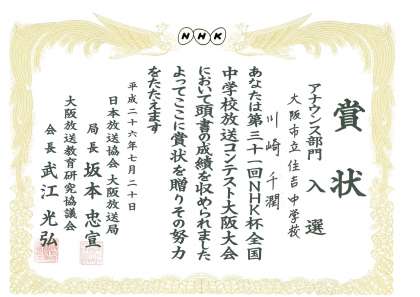 NHK
賞状
アナウンス部門 入選
大阪市立住吉中学校
川崎千潤
あなたは第三十一回NHK杯全国
中学校放送コンテスト大阪大会
において頭書の成績を収められました
よってここに賞状を贈りその努力
をたたえます
平成二十六年七月二十日
日本放送協会 大阪放送局
局長 坂本忠宣
大阪放送教育研究協議会
会長 武江光弘